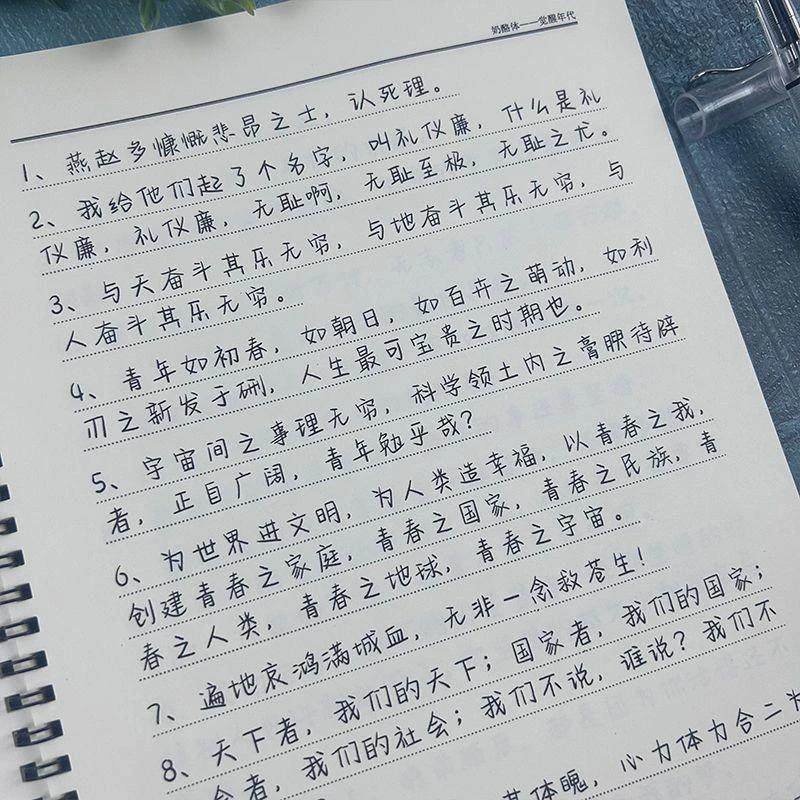 奶酪体——觉醒年代
1、燕赵多慷慨悲昂之士，认死理。
2、我给他们起了个名字，叫礼仪廉，什么是礼
仪廉，礼仪廉，无耻啊，无耻至极，无耻之尤。
3、与天奋斗其乐无穷，与地奋斗其乐无穷，与
人奋斗其乐无穷。
4、青年如初春，如朝日，如百卉之萌动，如利
刃之新发于硎，人生最可宝贵之时期也。
5、宇宙间之事理无穷，科学领土内之膏腴待辟
者，正自广阔，青年勉乎哉？
6、为世界进文明，为人类造幸福，以青春之我，
创建青春之家庭，青春之国家，青春之民族，青
春之人类，青春之地球，青春之宇宙。
7、遍地哀鸿满城血，无非一念救苍生！
8、天下者，我们的天下；国家者，我们的国家；
会者，我们的社会；我们不说，谁说？我们不
其体魄，心力体力合二为